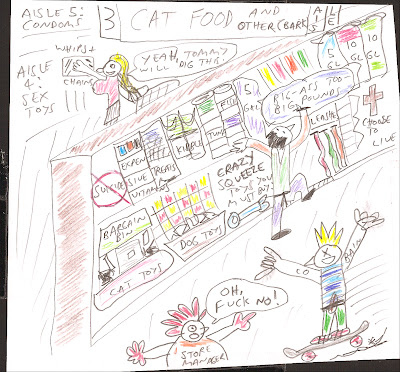 AISLE 5:
CONDOMS
3
CAT FOOD AND
OTHER (BARK)
AISLE
WHIPS +
CHAINS
YEAH, TOMMY
WILL DIG THIS!
AISLE
4:
SEX
TOYS
5
GL
10
GL
10
GL
BIG-ASS TOO
BIG POUNDS
LEASHES
CHOOSE
TO
LIVE
SUICIDE
EXPEN
SIVE
VITAMINS
TREATS
KIBBLE
TUNA
CRAZY
SQUEEZE
TOYS YOU
MUST BUY!
BARGAIN
BIN
CAT TOYS
DOG TOYS
OH,
FUCK NO!
STORE
MANAGER
CO